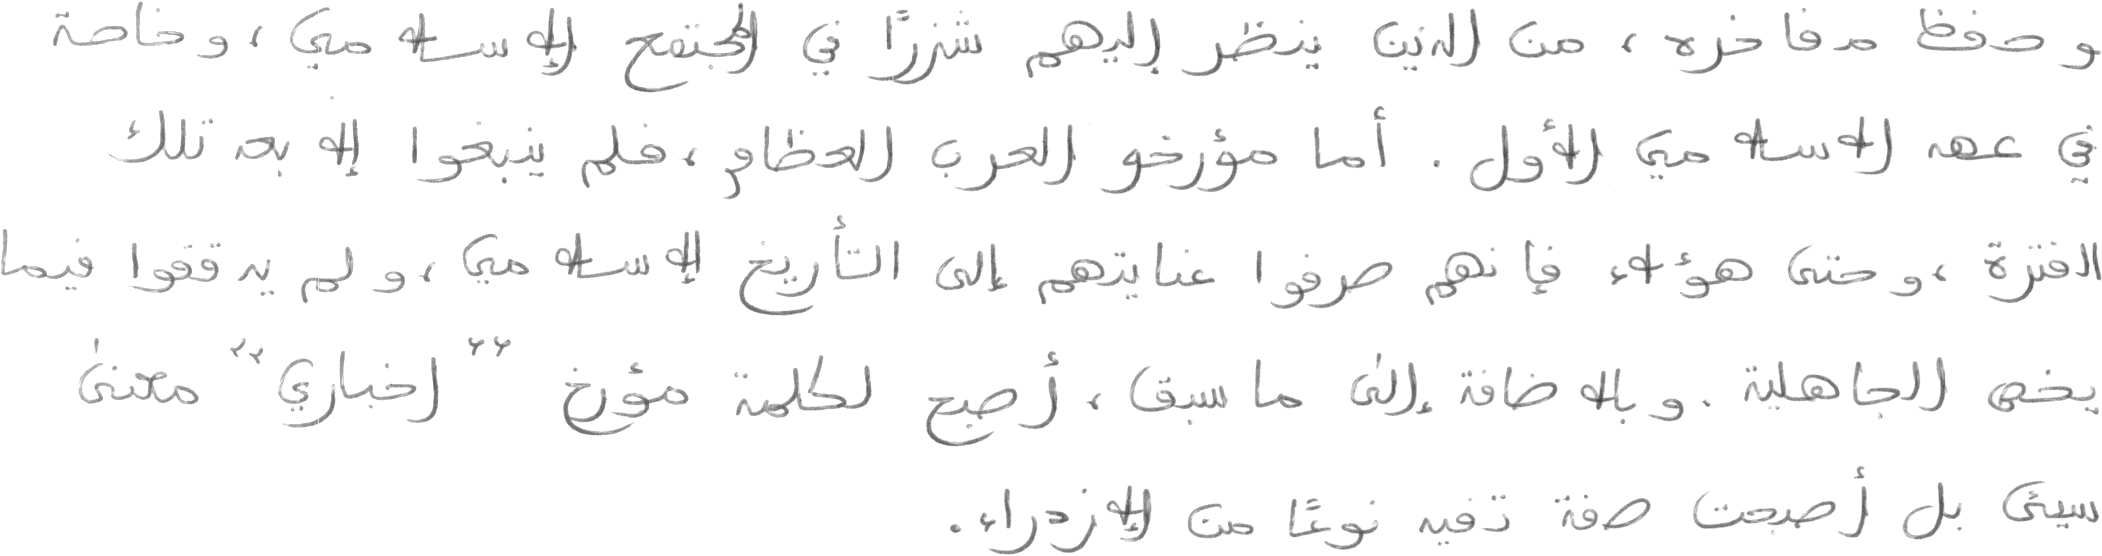 وحفظ مفاخره، من الذين ينظر إليهم شزرًا في المجتمع الإسلامي، وخاصة
في عهد الاسلامي الأول. أما مؤرخو العرب العظام، فلم ينبغوا إلا بعد تلك
الفترة، وحتى هؤلاء فإنهم صرفوا عنايتهم إلى التأريخ لإسلامي، ولم يدققوا فيما
يخص الجاهلية. وبالاضافة إلى ما سبق، أصبح لكلمة مؤرخ "اخباري" معنى
سيئ بل أصبحت صفة تفيد نوعًا من الإزدراء.